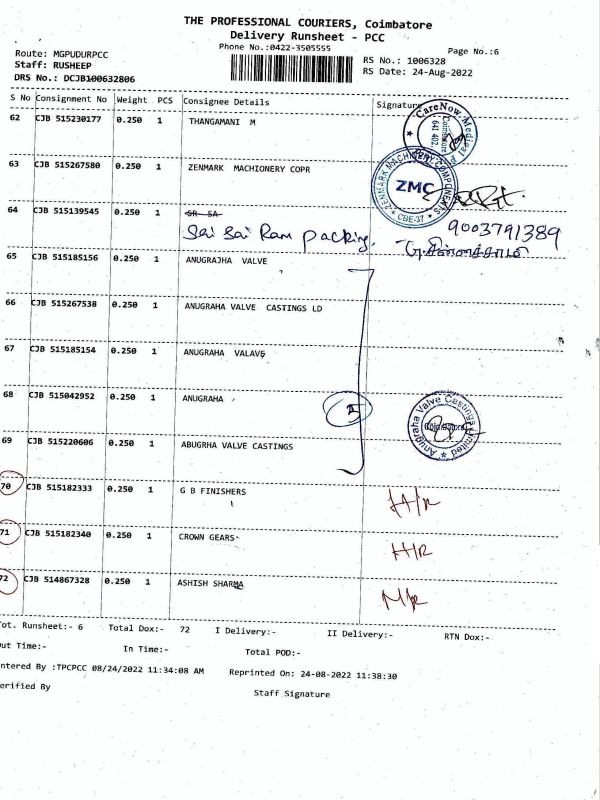 THE PROFESSIONAL COURIERS, Coimbatore
Delivery Runsheet - PCC
Phone No.:0422-3505555
Page No.:6
Route: MGPUDURPCC
Staff: RUSHEEP
DRS No.: DCJB100632806
RS No.: 1006328
RS Date: 24-Aug-2022
S No Consignment No Weight PCS Consignee Details Signature
62 CJB 515230177 0.250 1 THANGAMANI M
CareNow Medical
Coimbatore
641 402
63 CJB 515267580 0.250 1 ZENMARK MACHIONERY COPR
ZENMARK MACHINERY COMPONENTS
ZMC
CBE-37
64 CJB 515139545 0.250 1 SR SA
Sai Sai Ram packing.
9003791389
65 CJB 515185156 0.250 1 ANUGRAJHA VALVE
66 CJB 515267538 0.250 1 ANUGRAHA VALVE CASTINGS LD
67 CJB 515185154 0.250 1 ANUGRAHA VALAVE
68 CJB 515042952 0.250 1 ANUGRAHA
5
Anugraha Valve Castings Limited
Coimbatore
69 CJB 515220606 0.250 1 ABUGRHA VALVE CASTINGS
70 CJB 515182333 0.250 1 G B FINISHERS
H/R
71 CJB 515182340 0.250 1 CROWN GEARS
H/R
72 CJB 514867328 0.250 1 ASHISH SHARMA
Tot. Runsheet:- 6 Total Dox:- 72 I Delivery:- II Delivery:- RTN Dox:-
Out Time:- In Time:- Total POD:-
ntered By :TPCPCC 08/24/2022 11:34:08 AM Reprinted On: 24-08-2022 11:38:30
erified By
Staff Signature